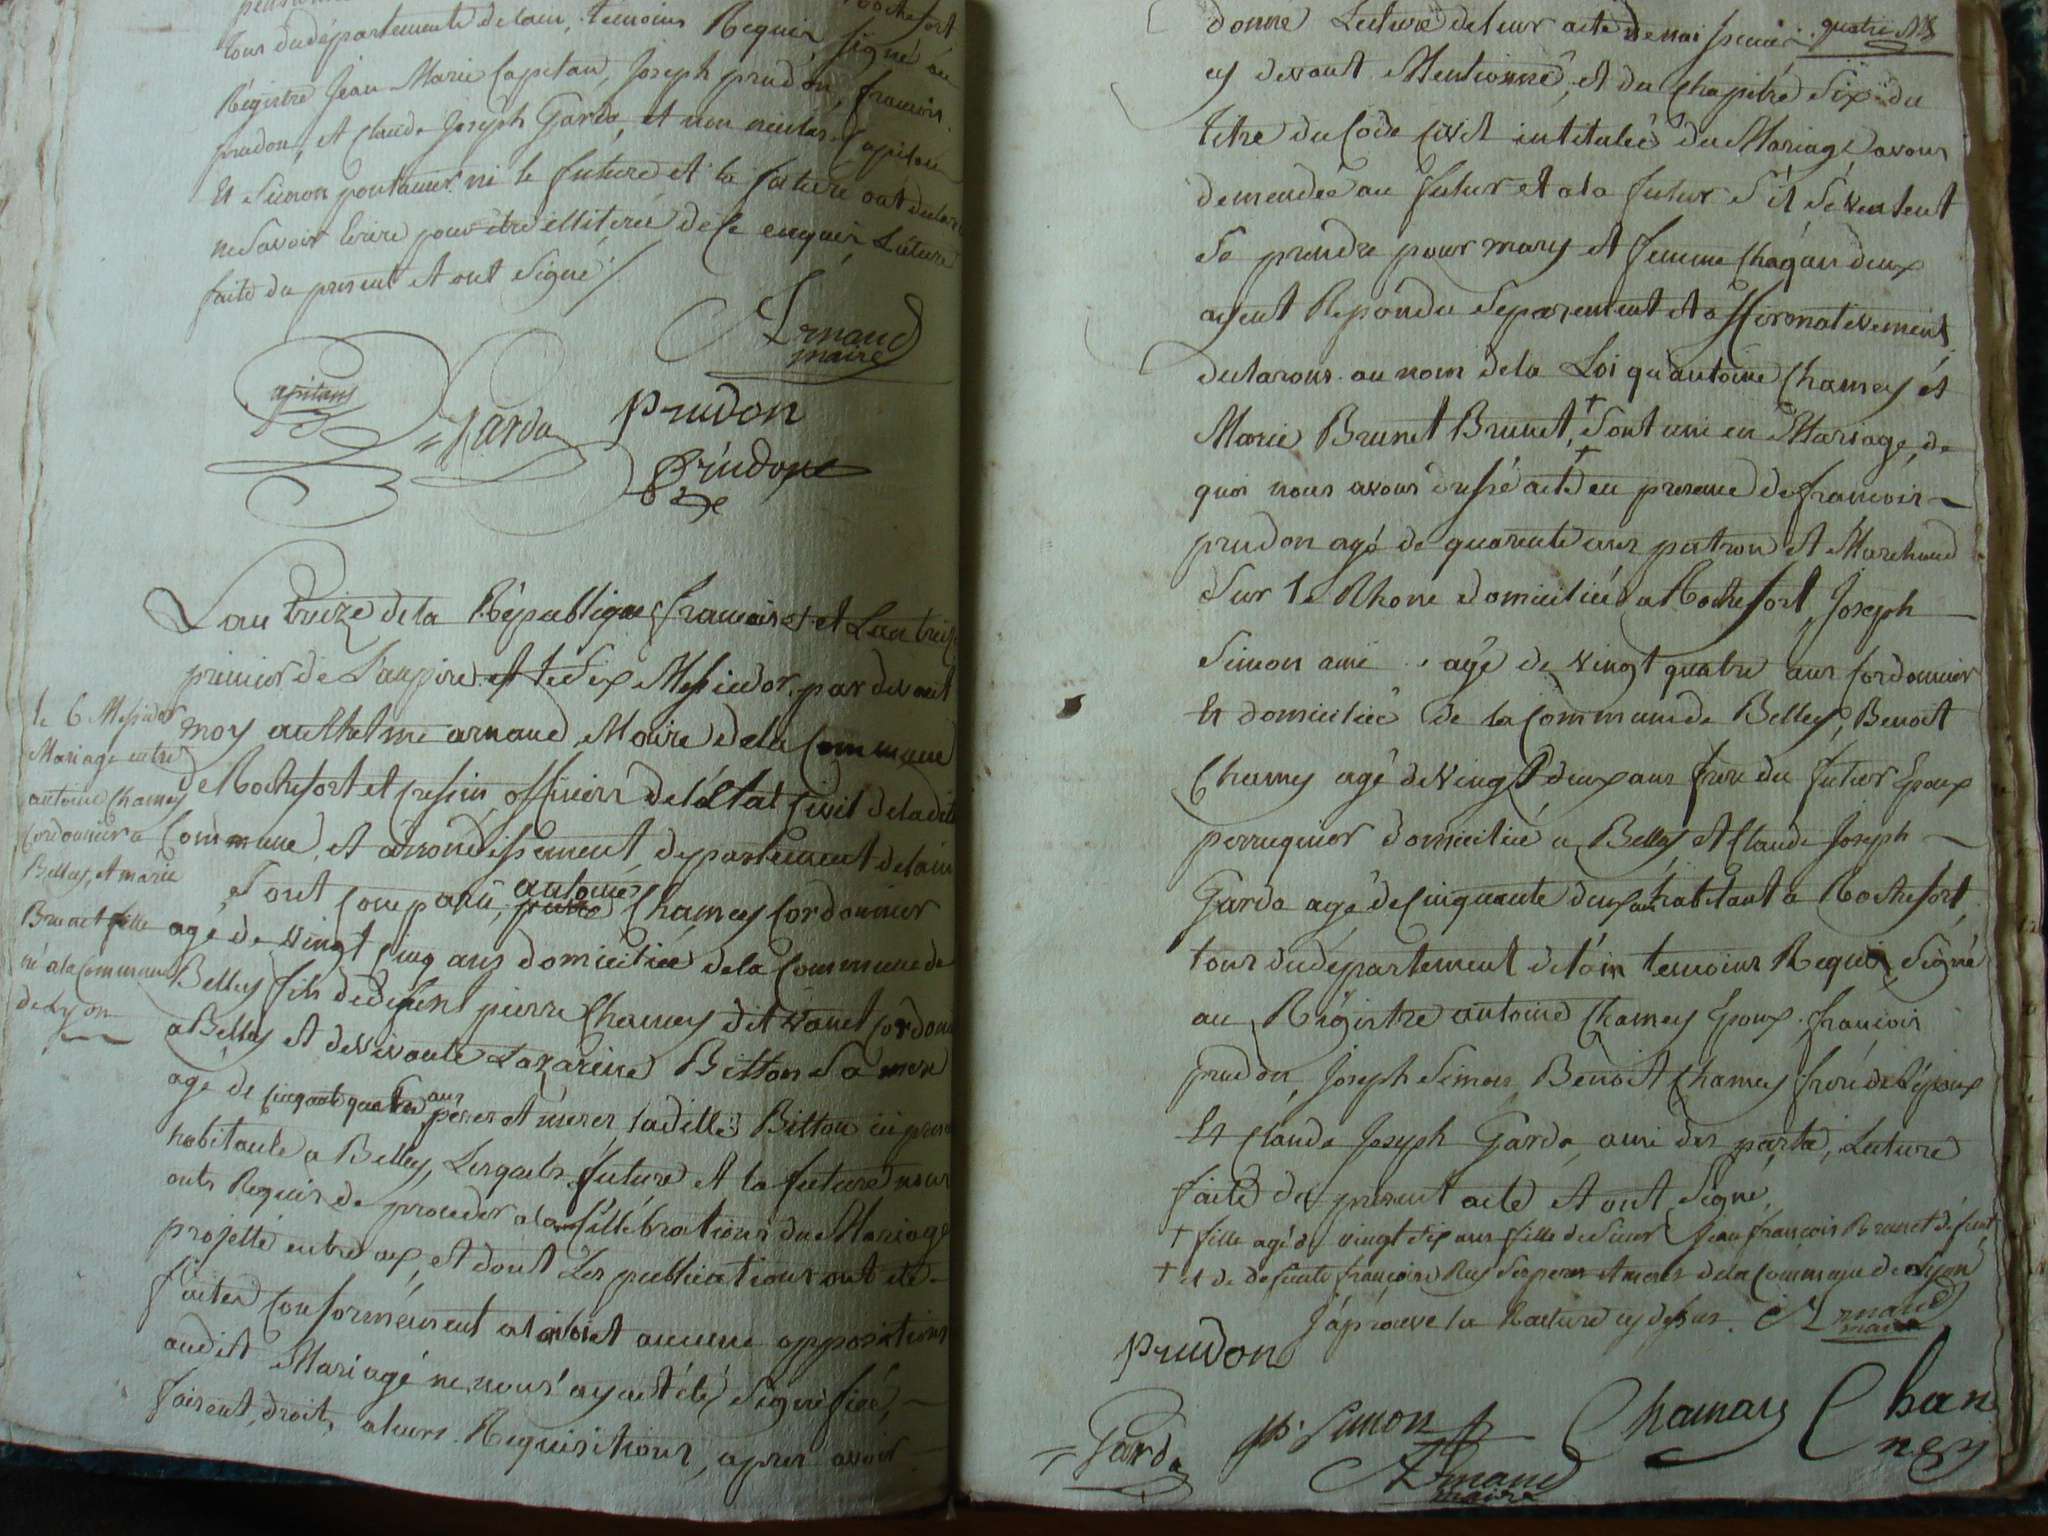 Rochefort
tous dudépartemente delain, temoins Requis, signé au
Régistre Jean Marie Capitan, Joseph prudon, francois
prudon, et Claude Joseph Garda, et non nicolas Capitan
Et Simon ni le future et la future ont declaré
ne Savoir Ecrire pour être illiterée de ce enquis Lecture
faite du present et ont signé
Arnaud
maire
Capitans
Garda
prudon
prudon
Lan treize de la République francoise et Lan treize
premier de Lanpire et le Six Messidor, par devant
moy anthelme arnaud Maire dela Commune
de Rochefort et Cressin officiers de l'état Civil deladite
Commune, et arrondissement, departement delain
sont Comparu, antoine Chamey Cordonnier
agé de vingt cinq ans domiciliée dela Commune de
Belley fils dedefunt pierre Chamey dit Cordonn
a Belley et devivante Lazarine Bitton Sa mere
age de cinquante quatre ans peres et meres laditte Bitton ici prese
habitante a Belley, Lesquels future et la future nous
onts Requis de proceder ala Cellebrations du Mariage
projetté entre eux, et dont Les publications ont été
faites Conformément alaloi et aucune oppositions
audit Mariagé ne nous ayant été Signifiée,
faisent droit, aleurs Requisitions, apres avoir
le 6 Messidor
Mariage entre
antoine Chamey
Cordonnier a
Belley, et marie
Brunet fille
né a la Commune
de Lyon
donné Lecture deleur acte denai premier quatre
cy devant Mentionné, et du Chapitre Six du
titre du Code Civil intitulée du Mariage avons
demendée au futur et ala futur S'il Sévenlent
Se prendre pour mary et femme Chaqun deux
ayent Repondu Séparement et affirmativement
declarons au nom dela Loi qu'antoine Chamey et
Marie Brunet Brunet, + Sont uni en Mariage, de
quoi nous avons dressé acte en presence de francois
prudon agé de quarente ans patron et Marchand
Sur le Rhone domiciliée a Rochefort, Joseph
Simon ami agé de vingt quatre ans Cordonnier
Et domiciliée de la Commune de Belley, Benoit
Chamey agé de vingt deux ans frere du futur Epoux
perruquier domiciliée a Belley et Claude Joseph
Garda agé de Cinquente deux ans habitant a Rochefort
tous dudépartement delain temoins Requis, Signé
au Régistre antoine Chamey Epoux, francois
prudon, Joseph Simon, Benoit Chamey frere de l'époux
Et Claude Joseph Garda, ami des partie, Lecture
faite du present acte et ont Signé,
+ fille agé de vingt Six ans fille de Sieur Jean francois Brunet défunt
+ et de defunte francoise Rey Ses peres et meres dela Commune de Lyon
J'aprouve la Rature cy dessus. Arnaud
maire
prudon
Garda
jh. Simon
Chamay
Cham
ney
Arnaud
maire